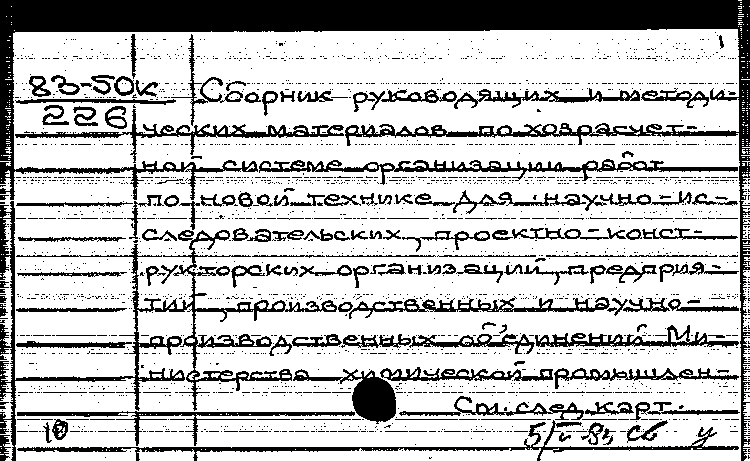 83-50к
226
Сборник руководящих и методи-
ческих материалов по хозрасчет-
ной системе организации работ
по новой технике для научно-ис-
следовательских, проектно-конст-
рукторских организаций, предприя-
тий, производственных и научно-
производственных об'единений Ми-
нистерства химической промышлен-
См. след. карт.
10